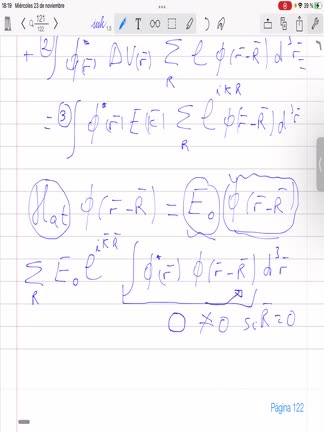 18:19 Miércoles 23 de noviembre
39 %
121
122
+ ② ∫ φ*(r̄) ΔV(r̄) Σ_R e^{i k̄ R̄} φ(r̄-R̄) d³r̄ =
= ③ ∫ φ*(r̄) E(k̄) Σ_R e φ(r̄-R̄) d³r̄
H_at φ(r̄-R̄) = E₀ φ(r̄-R̄)
Σ_R E₀ e^{i k̄ R̄} ∫ φ*(r̄) φ(r̄-R̄) d³r̄
0 ≠0 si R̄=0
Página 122